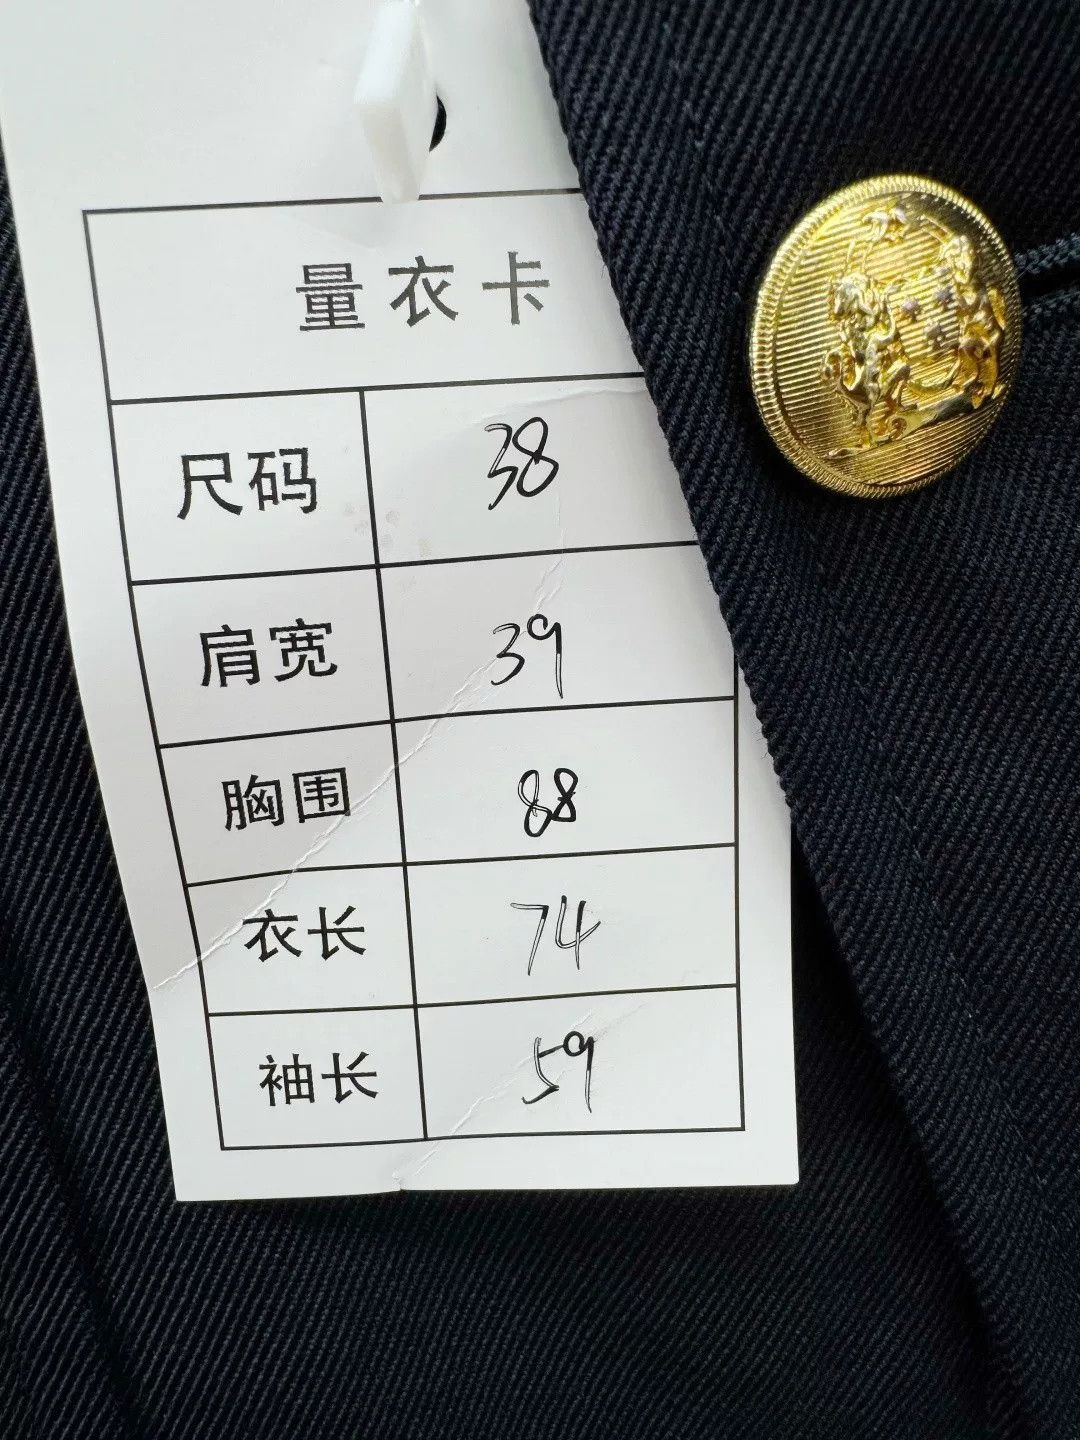 量衣卡
尺码 38
肩宽 39
胸围 88
衣长 74
袖长 59